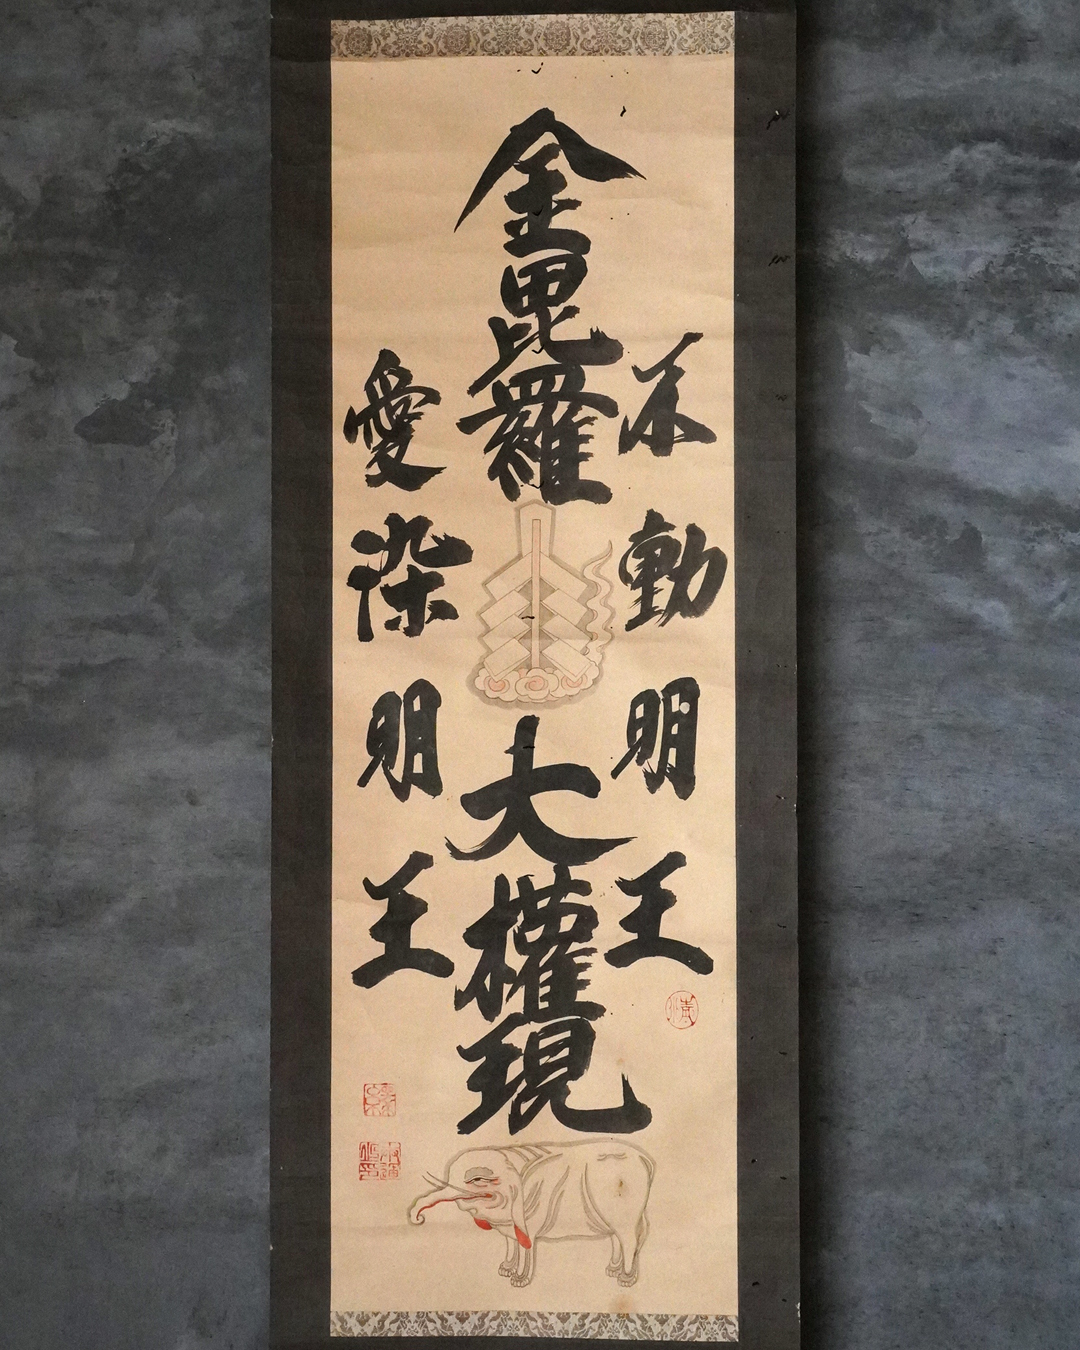 不動明王
金毘羅大權現
愛染明王